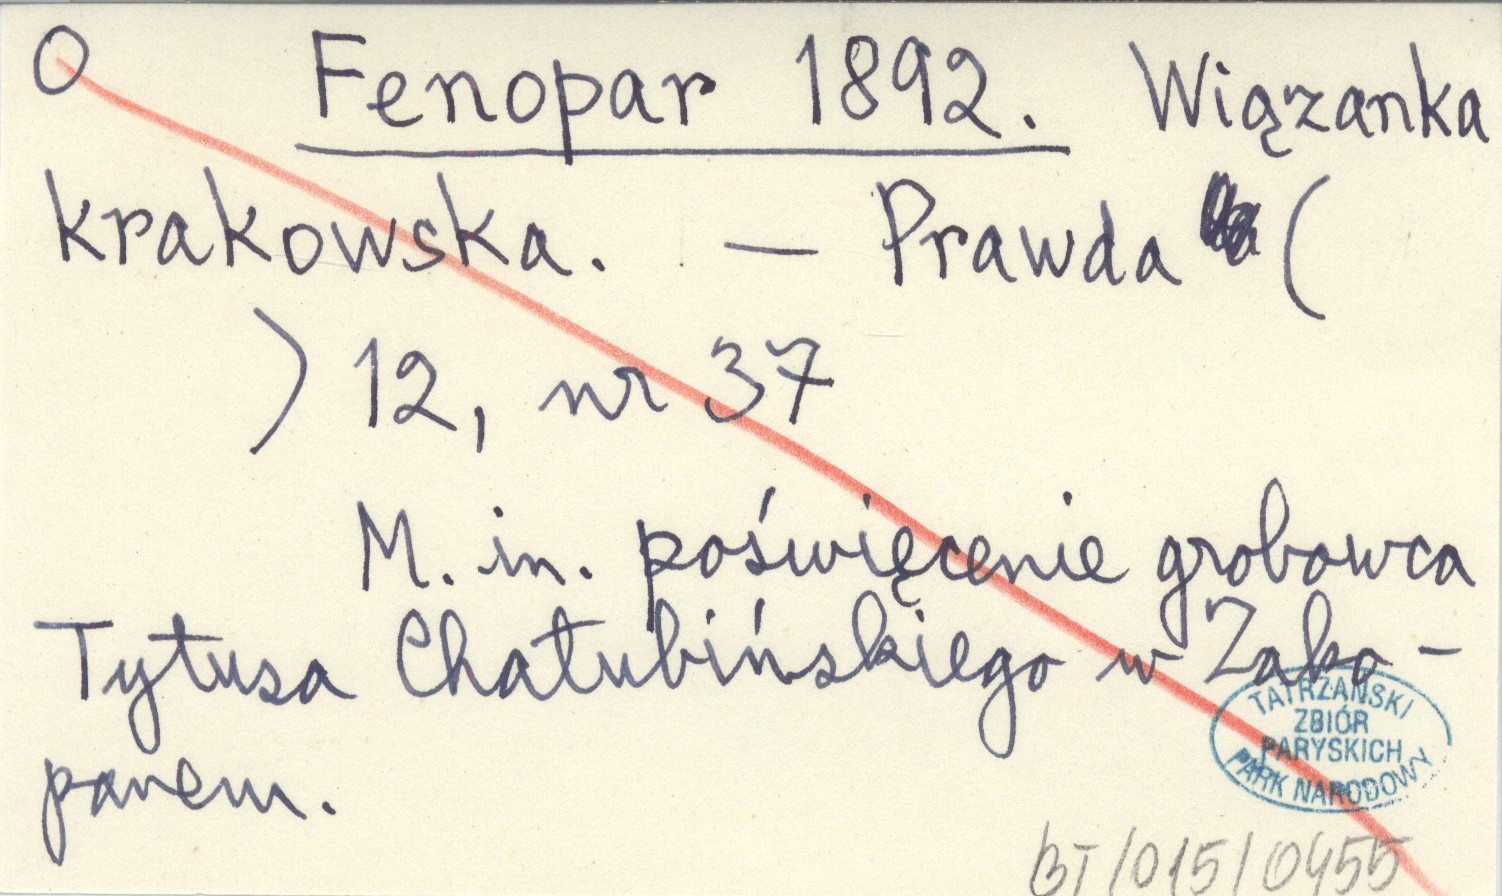 O Fenopar 1892. Wiązanka
krakowska. — Prawda (
) 12, nr 37
M. in. poświęcenie grobowca
Tytusa Chałubińskiego w Zako-
panem.
TATRZAŃSKI
ZBIÓR
PARYSKICH
PARK NARODOWY
BT/015/0455